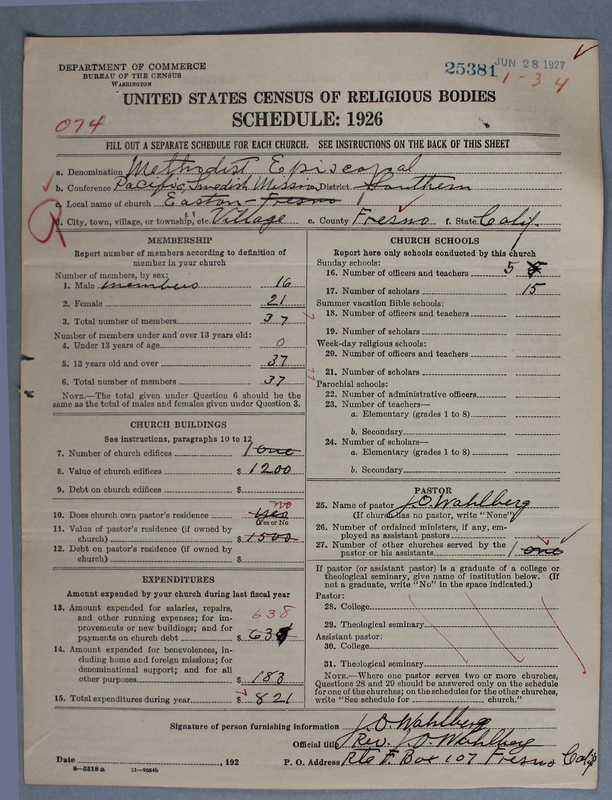 DEPARTMENT OF COMMERCE
BUREAU OF THE CENSUS
WASHINGTON
25381 JUN 28 1927
1-34
UNITED STATES CENSUS OF RELIGIOUS BODIES
SCHEDULE: 1926
074
FILL OUT A SEPARATE SCHEDULE FOR EACH CHURCH. SEE INSTRUCTIONS ON THE BACK OF THIS SHEET
a. Denomination Methodist Episcopal
b. Conference Pacific Swedish Mission District Southern
c. Local name of church Easton-Fresno
d. City, town, village, or township, etc. Village e. County Fresno f. State Calif.
MEMBERSHIP
Report number of members according to definition of member in your church
Number of members, by sex:
1. Male members 16
2. Female 21
3. Total number of members 37
Number of members under and over 13 years old:
4. Under 13 years of age 0
5. 13 years old and over 37
6. Total number of members 37
NOTE.—The total given under Question 6 should be the same as the total of males and females given under Question 3.
CHURCH BUILDINGS
See instructions, paragraphs 10 to 12
7. Number of church edifices 1 one
8. Value of church edifices $ 1200
9. Debt on church edifices $
10. Does church own pastor's residence Yes no
Yes or No
11. Value of pastor's residence (if owned by church) $ 1500
12. Debt on pastor's residence (if owned by church) $
EXPENDITURES
Amount expended by your church during last fiscal year
13. Amount expended for salaries, repairs, and other running expenses; for improvements or new buildings; and for payments on church debt $ 638
638
14. Amount expended for benevolences, including home and foreign missions; for denominational support; and for all other purposes $ 183
15. Total expenditures during year $ 821
CHURCH SCHOOLS
Report here only schools conducted by this church
Sunday schools:
16. Number of officers and teachers 5
17. Number of scholars 15
Summer vacation Bible schools:
18. Number of officers and teachers
19. Number of scholars
Week-day religious schools:
20. Number of officers and teachers
21. Number of scholars
Parochial schools:
22. Number of administrative officers
23. Number of teachers—
a. Elementary (grades 1 to 8)
b. Secondary
24. Number of scholars—
a. Elementary (grades 1 to 8)
b. Secondary
PASTOR
25. Name of pastor J.O. Wahlberg
(If church has no pastor, write "None")
26. Number of ordained ministers, if any, employed as assistant pastors
27. Number of other churches served by the pastor or his assistants 1 one
If pastor (or assistant pastor) is a graduate of a college or theological seminary, give name of institution below. (If not a graduate, write "No" in the space indicated.)
Pastor:
28. College
29. Theological seminary
Assistant pastor:
30. College
31. Theological seminary
NOTE.—Where one pastor serves two or more churches, Questions 28 and 29 should be answered only on the schedule for one of the churches; on the schedules for the other churches, write "See schedule for church."
Signature of person furnishing information J.O. Wahlberg
Official title Rev. J.O. Wahlberg
Date , 192 P. O. Address Rte F. Box 107 Fresno Calif
8-5518 a 11-9084b